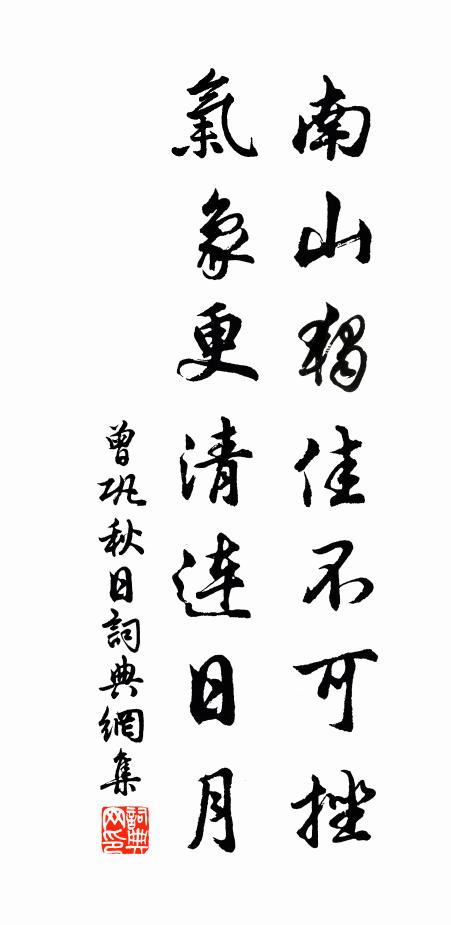 南山獨佳不可挫
氣象更清連日月
曾巩秋日詞典網集
詞典网印